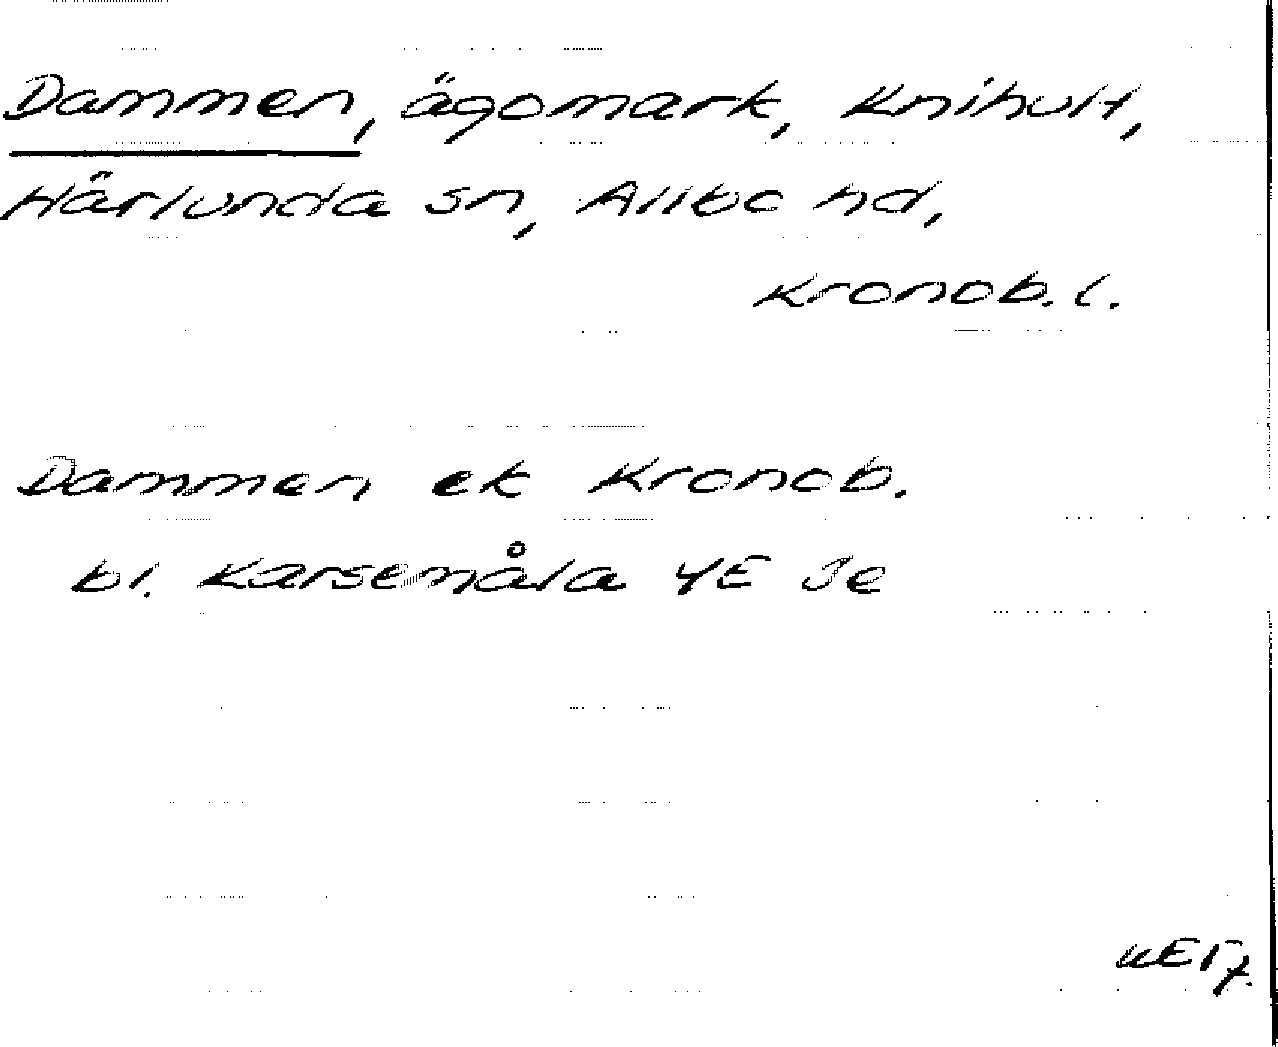 Dammen, ägomark, Knihult,
Härlunda sn, Allbo hd,
Kronob. l.
Dammen ek Kronob.
bl. Karsemåla 4E Je